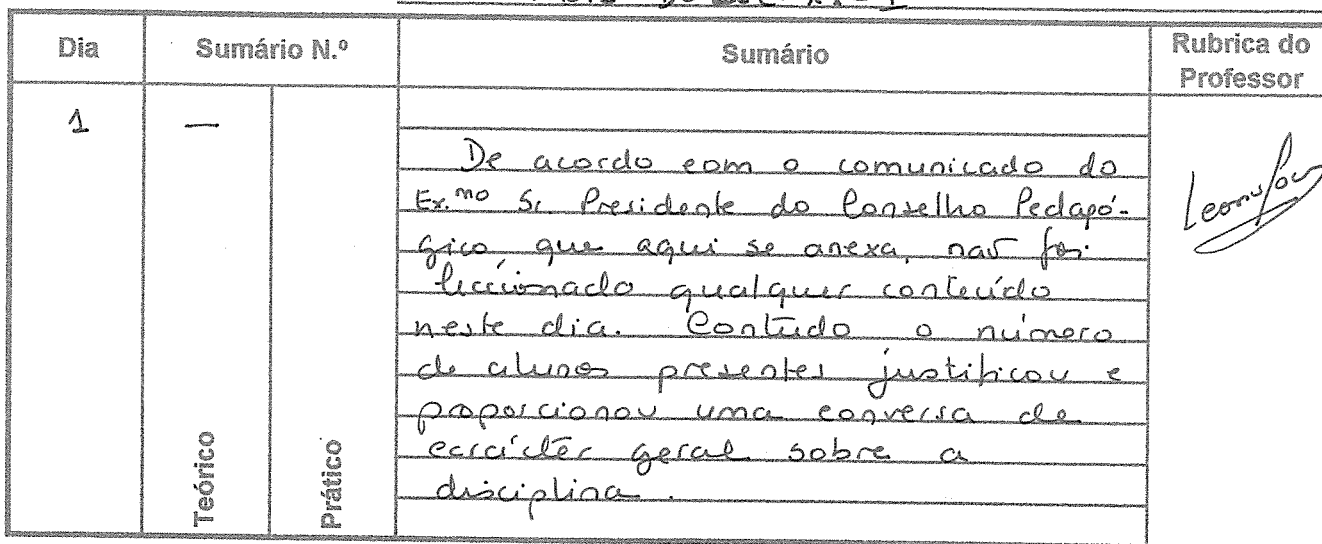 Dia Sumário N.º Sumário Rubrica do Professor
1 —
De acordo com o comunicado do
Ex.mo Sr. Presidente do Conselho Pedagó-
gico, que aqui se anexa, não foi
leccionado qualquer conteúdo
neste dia. Contudo o número
de alunos presentes justificou e
proporcionou uma conversa de
carácter geral sobre a
disciplina.
Teórico
Prático